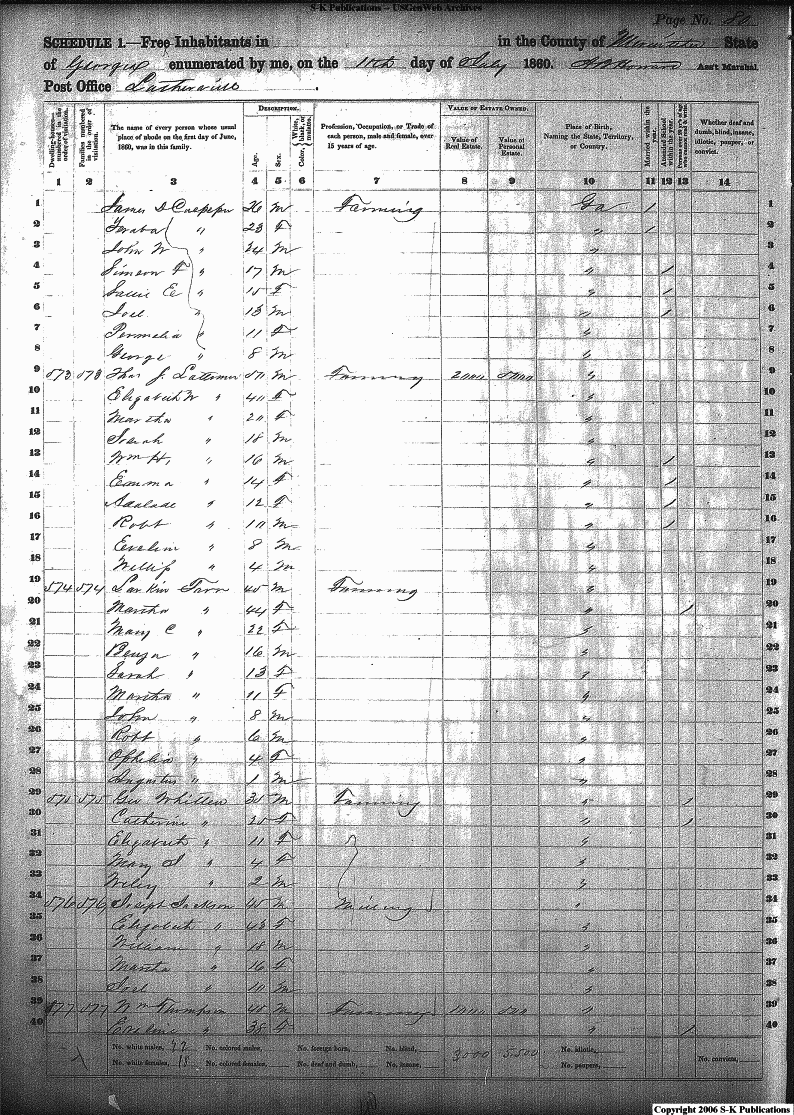 S-K Publications – USGenWeb Archives
Page No. 80
SCHEDULE 1.—Free Inhabitants in in the County of State
of Georgia enumerated by me, on the day of July 1860. Howard Ass't Marshal
Post Office
Dwelling-houses—numbered in the order of visitation.
Families numbered in the order of visitation.
The name of every person whose usual place of abode on the first day of June, 1860, was in this family.
DESCRIPTION.
Age.
Sex.
Color, White, black, or mulatto.
Profession, Occupation, or Trade of each person, male and female, over 15 years of age.
VALUE OF ESTATE OWNED.
Value of Real Estate.
Value of Personal Estate.
Place of Birth, Naming the State, Territory, or Country.
Married within the year.
Attended School within the year.
Persons over 20 y'rs of age who cannot read & write.
Whether deaf and dumb, blind, insane, idiotic, pauper, or convict.
1 2 3 4 5 6 7 8 9 10 11 12 13 14
1 James D 26 m Farming Ga / 1
2 " 23 f " / 2
3 John W " 24 m " 3
4 Simeon F " 17 m " / 4
5 " 15 f " / 5
6 Joel " 13 m " / 6
7 " 11 f " 7
8 George " 8 m " 8
9 573 573 Thos J. m Farming 2000 " 9
10 Elizabeth W " 40 f " 10
11 Martha " 20 f " 11
12 " 18 m " 12
13 Wm H. " 16 m " / 13
14 Emma " 14 f " / 14
15 " 12 f " / 15
16 Robt " 10 m " / 16
17 Evalin " 8 m " 17
18 " 4 m " 18
19 574 574 Larkin Farr 45 m Farming " 19
20 Martha " 44 f " / 20
21 Mary C " 22 f " 21
22 Benja " 16 m " 22
23 Sarah " 13 f " 23
24 Martha " 11 f " 24
25 John " 8 m " 25
26 Robt " 6 m " 26
27 Ophelia " 4 f " 27
28 Augustus " 1 m " 28
29 575 575 Geo Whitten 35 m Farming " / 29
30 Catherine " 25 f " / 30
31 Elizabeth " 11 f " 31
32 Mary J " 4 f " 32
33 Wiley " 2 m " 33
34 576 576 Joseph Jackson 45 m Milling " 34
35 Elizabeth " 43 f " 35
36 William " 18 m " 36
37 Martha " 16 f " 37
38 Joel " 10 m " 38
39 577 577 Wm Thompson 40 m Farming 1000 500 " 39
40 Eveline " 38 f " / 40
No. white males, 22 No. colored males, No. foreign born, No. blind, 3000 5,500 No. idiotic,
No. white females, 18 No. colored females, No. deaf and dumb, No. insane, No. paupers, No. convicts,
Copyright 2006 S-K Publications